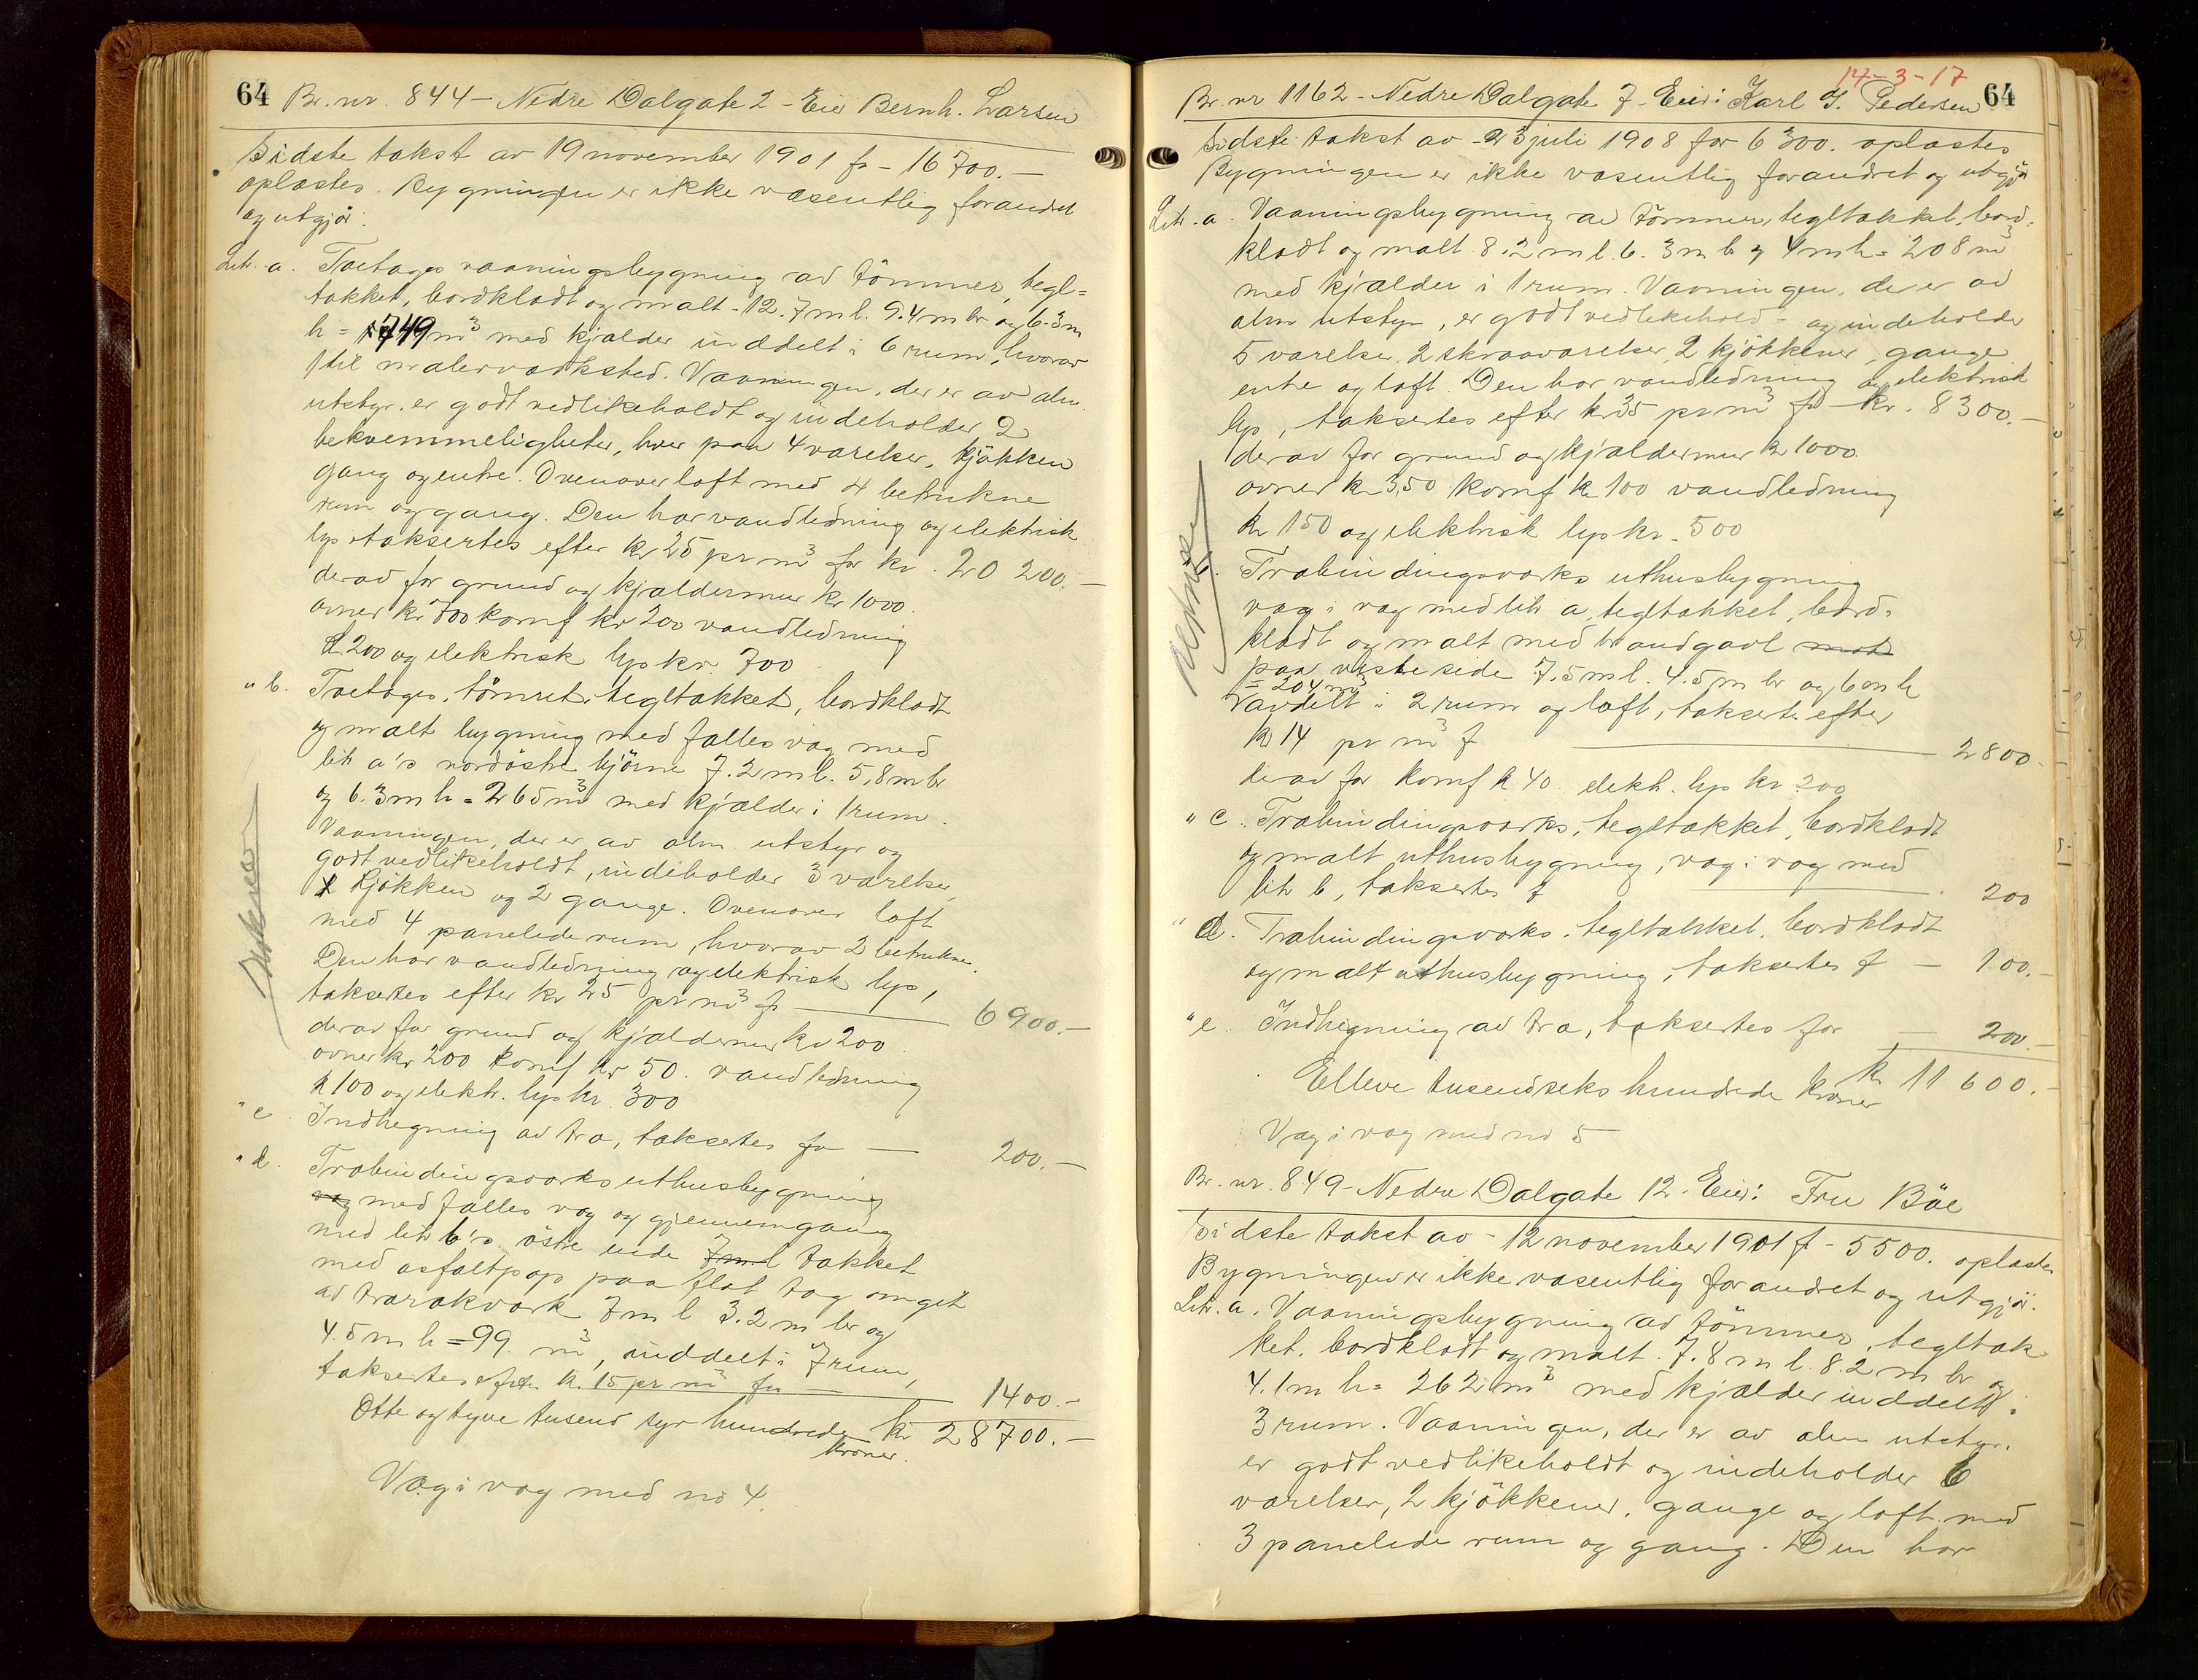 64 Br. nr. 844 - Nedre Dalgate 2 - Eier Bernh. Larsen
Sidste takst av 19 november 1901 fr - 16 700.-
oplæstes. Bygningen er ikke væsentlig forandret
og utgjør:
Litr. a. Toetages vaaningsbygning av tömmer, tegl=
tækket, bordklædt og malt - 12.7 m l. 9.4 m br og 6.3 m
h = 749 m³ med kjælder inddelt i 6 rum, hvorav
1 til malerværksted. Vaaningen, der er av alm.
utstyr, er godt vedlikeholdt og indeholder 2
bekvemmeligheter, hver paa 4 værelser, kjøkken
gang og entre. Ovenover loft med 4 betrukne
rum og gang. Den har vandledning og elektrisk
lys taksertes efter kr 25 pr m³ for kr. 20 200.-
derav for grund og kjældermur kr 1000.
ovner kr 700 komf kr 200 vandledning
k 200 og elektrisk lys kr 700
" b. Toetages, tömret, tegltækket, bordklædt
og malt bygning med fælles væg med
litr a's nordöstre hjörne 7.2 m l. 5,8 m br
og 6.3 m h = 265 m³ med kjælder i 1 rum.
Vaaningen, der er av alm. utstyr og
godt vedlikeholdt, indeholder 3 værelser,
1 kjøkken og 2 gange. Ovenover loft
med 4 panelede rum, hvorav 2 betrukne.
Den har vandledning og elektrisk lys,
taksertes efter kr 25 pr m³ fr 6 900.-
derav for grund og kjældermur kr 200
ovner kr 200 komf kr 50. vandledning
k 100 og elektr. lys kr 300
" c Indhegning av træ, taksertes fr - 200.-
" d. Træbindingsværks uthusbygning
væg med fælles væg og gjennemgang
med litr b's östre ende 7 m l tækket
med asfaltpap paa flat tag omgit
av trærækværk 7 m l 3.2 m br og
4.5 m h = 99 m³, inddelt i 7 rum,
taksertes efter kr. 15 pr m³ fr 1400.-
Otte og tyve tusend syv hundrede kr 28700.-
kroner.
Væg i væg med no 4.
14-3-17
Br. nr 1162 - Nedre Dalgate 7 - Eier: Karl G. Pedersen 64
Sidste takst av 23 juli 1908 for 6 300. oplæstes
Bygningen er ikke væsentlig forandret og utgjør
Litr. a. Vaaningsbygning av tömmer, tegltækket, bord=
klædt og malt 8.2 m l. 6.3 m b og 4 m h = 208 m³
med kjælder i 1 rum. Vaaningen, der er av
alm utstyr, er godt vedlikehold- og indeholder
5 værelser, 2 skraaværelser, 2 kjøkkener, gange
entre og loft. Den har vandledning og elektrisk
lys, taksertes efter kr 35 pr m³ fr kr. 8300.-
derav for grund og kjældermur kr 1000
ovner kr 350 komf kr 100 vandledning
kr 150 og elektrisk lys kr. 500
Træbindingsværks uthusbygning
væg i væg med litr a, tegltækket, bord=
klædt og malt med brandgavl mot
paa vestre side 7.5 m l. 4.5 m br og 6 m h
= 204 m³
inddelt i 2 rum og loft, taksertes efter
kr 14 pr m³ f 2800.
derav for komf k 40 elektr. lys kr 200
" c. Træbindingsværks, tegltækket, bordklædt
og malt uthusbygning, væg i væg med
litr b, taksertes f 200
" d. Træbindingsværks, tegltækket, bordklædt
og malt uthusbygning, taksertes f - 100.-
" e. Indhegning av træ, taksertes for - 200.-
Elleve tusend seks hundrede kroner kr 11 600.-
Væg i væg med no 5
Br. nr. 849 - Nedre Dalgate 12 - Eier: Fru Böe
Sidste takst av - 12 november 1901 f - 5500. oplæstes
Bygningen er ikke væsentlig forandret og utgjör.
Litr. a. Vaaningsbygning av tömmer, tegltæk
ket, bordklædt og malt. 7.8 m l. 8.2 m br og
4.1 m h = 262 m³ med kjælder inddelt i
3 rum. Vaaningen, der er av alm utstyr,
er godt vedlikeholdt og indeholder 6
værelser, 2 kjøkkener, gange og loft med
3 panelede rum og gang. Den har